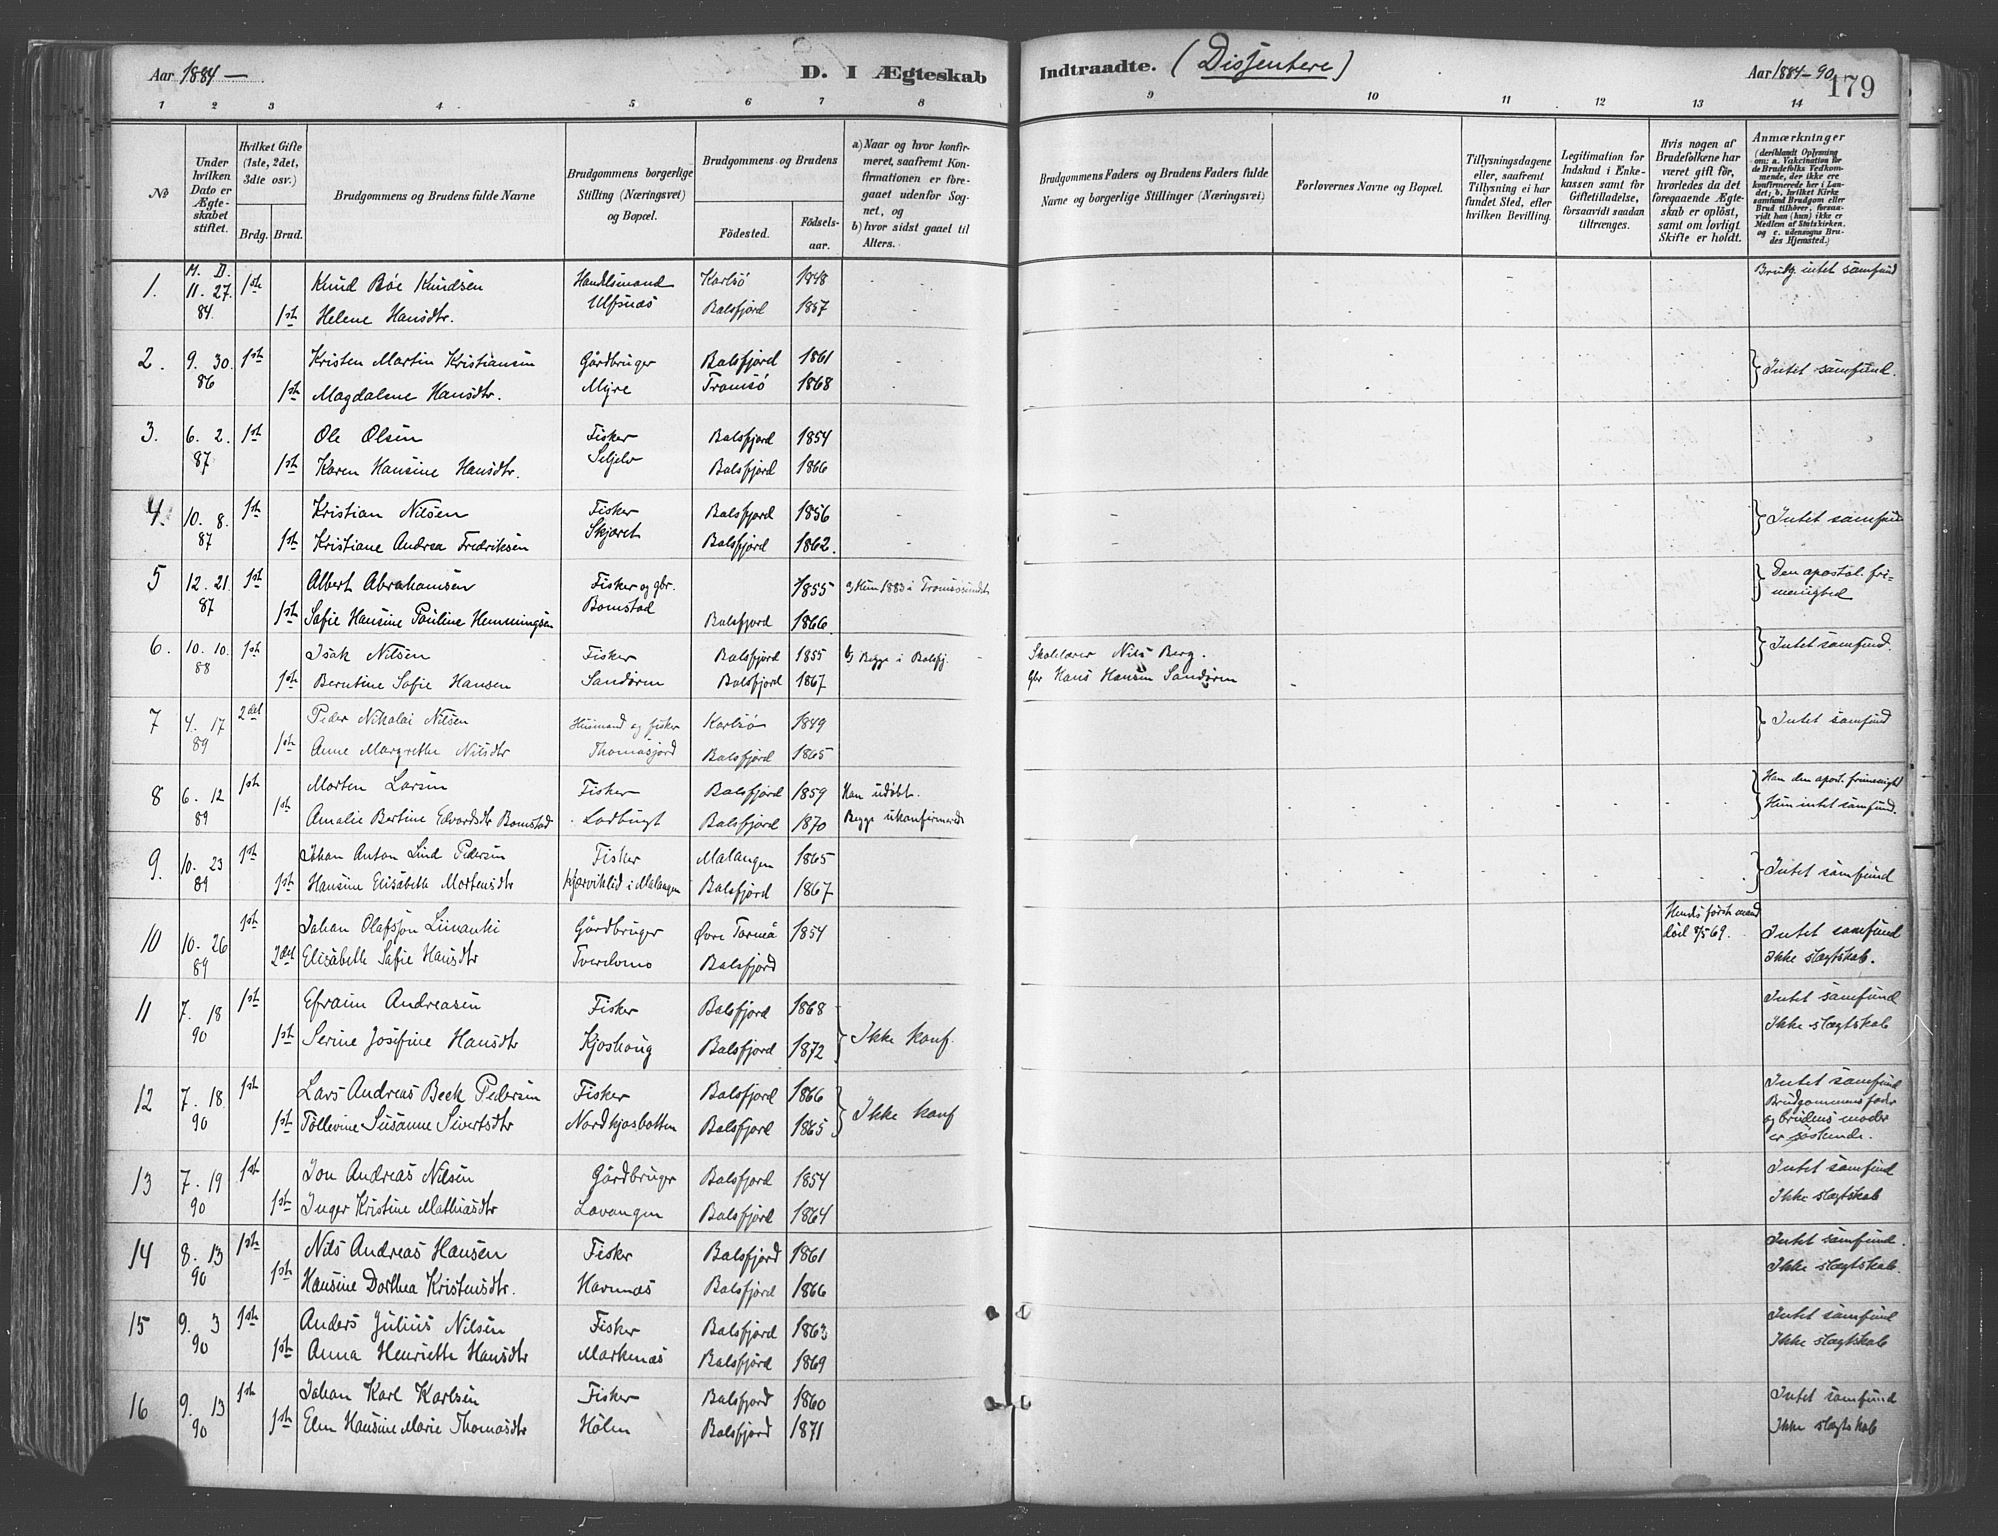 Aar 1884 —
D. I Ægteskab
Indtraadte. (Dissentere)
Aar 1884–90
179
1 2 3 4 5 6 7 8 9 10 11 12 13 14
No
Under hvilken Dato er Ægteskabet stiftet.
Hvilket Gifte (1ste, 2det, 3die osv.)
Brdg. Brud.
Brudgommens og Brudens fulde Navne
Brudgommens borgerlige Stilling (Næringsvei) og Bopæl.
Brudgommens og Brudens
Fødested. Fødselsaar.
a) Naar og hvor konfirmeret, saafremt Konfirmationen er foregaaet udenfor Sognet, og
b) hvor sidst gaaet til Alters.
Brudgommens Faders og Brudens Faders fulde Navne og borgerlige Stillinger (Næringsvei)
Forlovernes Navne og Bopæl.
Tillysningsdagene eller, saafremt Tillysning ei har fundet Sted, efter hvilken Bevilling.
Legitimation for Indskud i Enkekassen samt for Giftetilladelse, forsaavidt saadan tiltrænges.
Hvis nogen af Brudefolkene har været gift før, hvorledes da det foregaaende Ægteskab er opløst, samt om lovligt Skifte er holdt.
Anmærkninger (deriblandt Oplysning om: a. Vakcination for de Brudefolks Vedkommende, der ikke ere konfirmerede her i Landet; b. hvilket Kirkesamfund Brudgom eller Brud tilhører, forsaavidt han (hun) ikke er Medlem af Statskirken, og c. udensogns Brudes Hjemsted.)
1. M. D. 11. 27. 84. 1ste Knud Bøe Knudsen Handelsmand Karlsö 1848 Brudg. intet samfund
1st Helene Hansdtr. Ulfsnæs Balsfjord 1857
2. 9. 30. 86 1ste Kristen Martin Kristiansen Gårdbruger Balsfjord 1861 Intet samfund.
1st Magdalene Hansdtr. Myre Tromsö 1868
3. 6. 2. 87 1st Ole Olsen Fisker Balsfjord 1854
1st Karen Hansine Hansdtr. Seljelv Balsfjord 1866
4. 10. 8. 87 1st Kristian Nilsen Fisker Balsfjord 1856 Intet samfund
1st Kristiane Andrea Fredriksen Skjæret Balsfjord 1862.
5 12. 21. 87 1st Albert Abrahamsen Fisker og gbr. 1855 a) Hun 1883 i Tromsösundet Den apostol. frimenighed
1st Sofie Hansine Pauline Hemmingsen Bomstad Balsfjord 1866
6. 10. 10. 88 1st Isak Nilsen Fisker Balsfjord 1855 b) Begge i Balsfj. Skolelærer Nils Berg. Intet samfund.
1st Berntine Sofie Hansen Sandören Balsfjord 1867 Gbr Hans Hansen Sandören
7 4. 17 89 2det Peder Nikolai Nilsen Husmand og fisker Karlsö 1849 Intet samfund
1st Anne Margrethe Nilsdtr Thomasjord Balsfjord 1865
8 6. 12 89 1st Morten Larsen Fisker Balsfjord 1859 Han udöbt. Han den apost. frimenighd
1st Amalie Bertine Edvardsdtr Bomstad Ladbugt Balsfjord 1870 Begge ukonfirmerede Hun intet samfund.
9. 10. 23 89 1st Johan Anton Lind Pedersen Fisker Malangen 1865 Intet samfund
1st Hansine Elisabeth Mortensdtr Kjærviklid i Malangen Balsfjord 1867
10 10. 26 89 1st Johan Olafsson Gårdbruger Övre Torneå 1854 Hendes förste mand död 8/5 69. Intet samfund
2det Elisabeth Sofie Hansdtr Tverelvmo Balsfjord Ikke slægtskab.
11 7. 18 90 1st Efraim Andreasen Fisker Balsfjord 1868 Ikke konf. Intet samfund
1st Serine Josefine Hansdtr Kjoshaug Balsfjord 1872 Ikke slægtskab
12 7. 18 90 1st Lars Andreas Beck Pedersen Fisker Balsfjord 1866 Ikke konf Intet samfund
1st Tollevine Susanne Sivertsdtr Nordkjosbotten Balsfjord 1865 Brudgommens fader og brudens moder er söskende.
13 7. 19 90 1st Jon Andreas Nilsen Gårdbruger Balsfjord 1854 Intet samfund
1st Inger Kristine Mathiasdtr Lavangen Balsfjord 1864 Ikke slægtskab
14 8. 13 90 1st Nils Andreas Hansen Fisker Balsfjord 1861 Intet samfund.
1st Hansine Dorthea Kristensdtr. Havnnæs Balsfjord 1866 Ikke slægtskab.
15 9. 3 90 1st Anders Julius Nilsen Fisker Balsfjord 1863 Intet samfund
1st Anna Henriette Hansdtr Markenæs Balsfjord 1869 Ikke slægtskab
16 9. 13 90 1st Johan Karl Karlsen Fisker Balsfjord 1860 Intet samfund
1st Elen Hansine Marie Thomasdtr Holm Balsfjord 1871 Ikke slægtskab